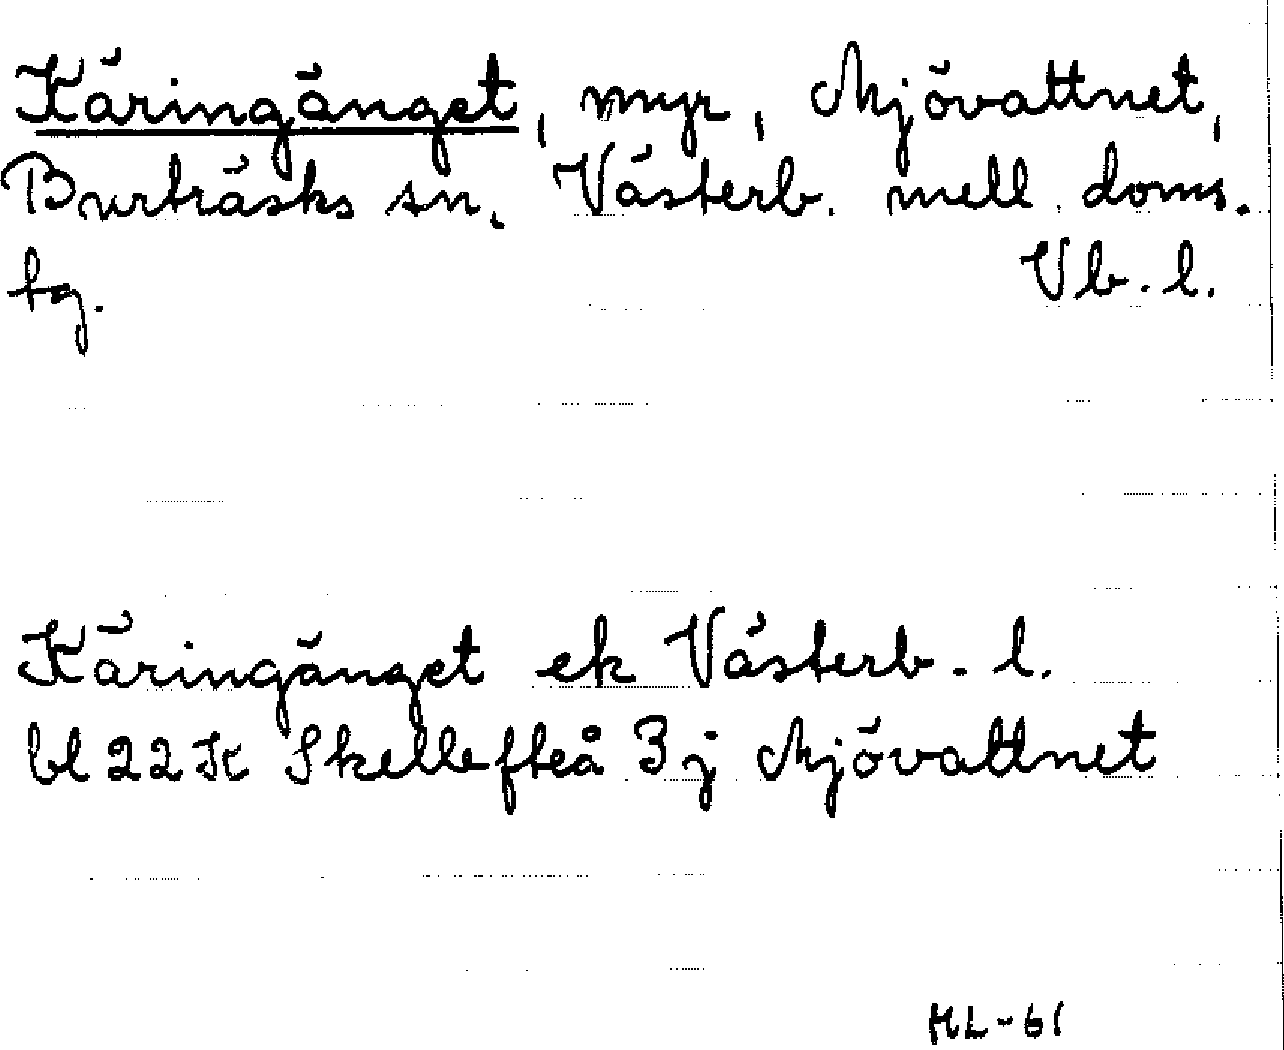 Käringänget, myr, Mjövattnet,
Burträsks sn, Västerb. mell. doms.
tg. Vb. l.
Käringänget ek Västerb. l.
bl 22 K Skellefteå 3 j Mjövattnet
HL-61